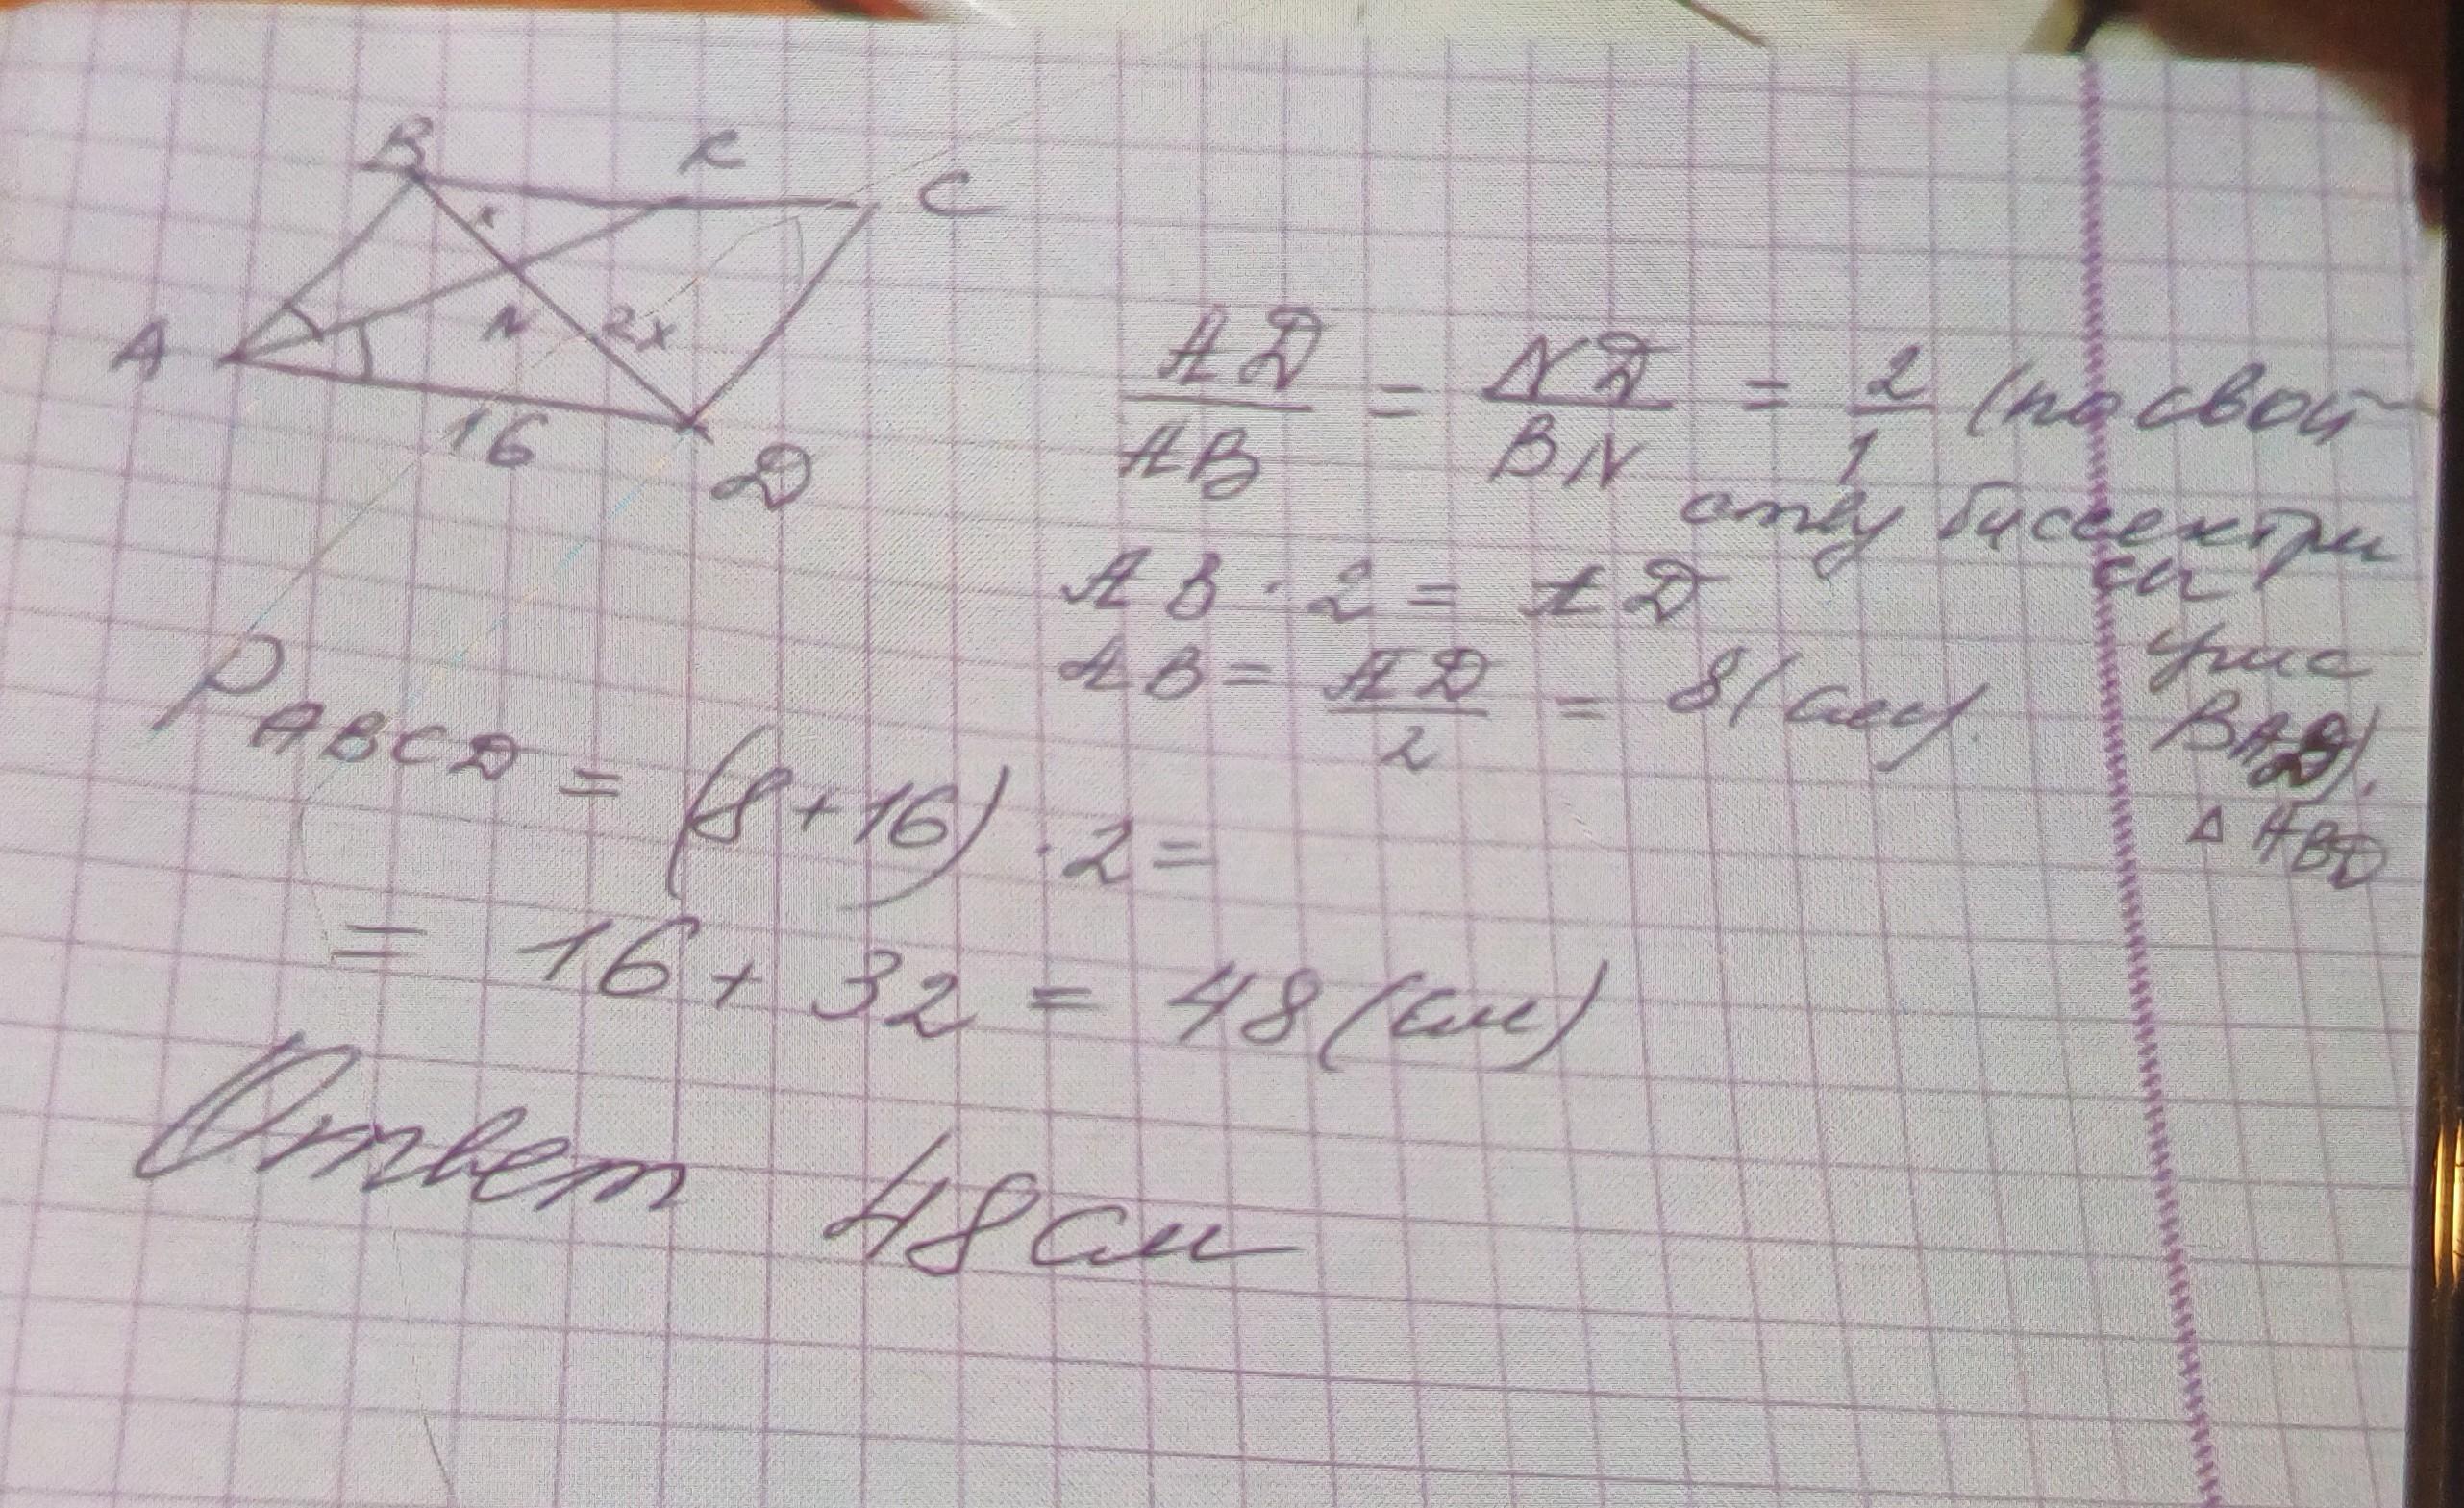 B K C
x
A N 2x
16
D
AD/AB = ND/BN = 2/1 (по свой
ству биссектри
сы
угла
BAD).
△ ABD
AB · 2 = AD
AB = AD/2 = 8 (см).
P ABCD = (8+16) · 2 =
= 16 + 32 = 48 (см)
Ответ 48 см